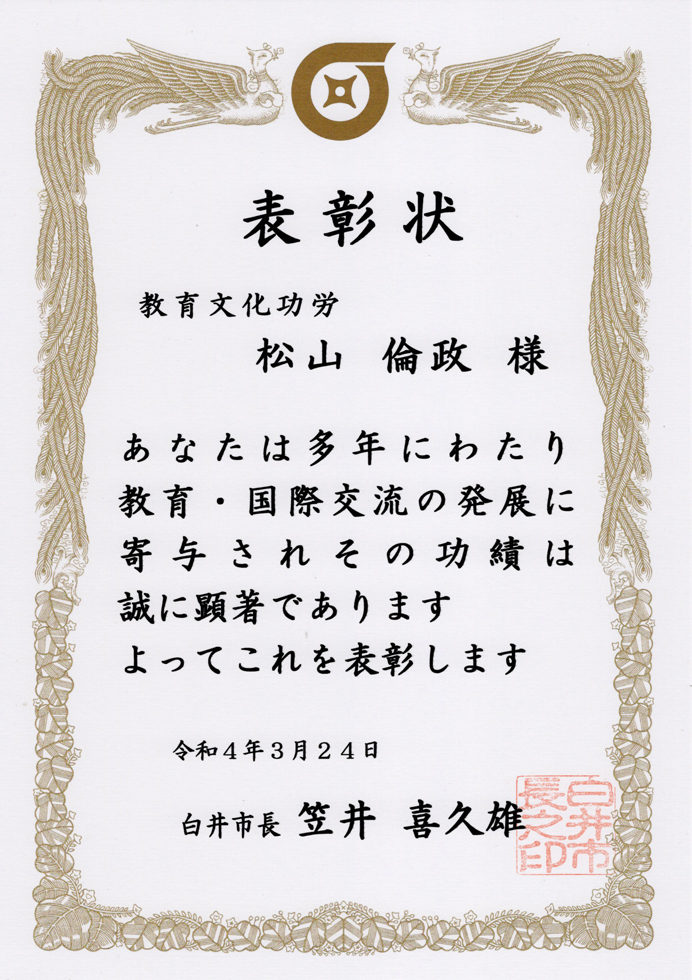 表彰状
教育文化功労
松山 倫政 様
あなたは多年にわたり
教育・国際交流の発展に
寄与されその功績は
誠に顕著であります
よってこれを表彰します
令和４年３月２４日
白井市長 笠井 喜久雄
白井市長之印